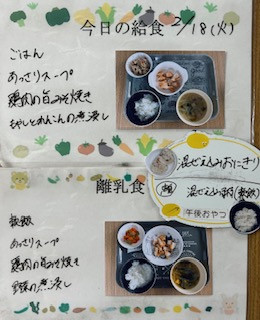 今日の給食 2/18(火)
ごはん
あっさりスープ
鶏肉の旨み焼き
もやしとにんじんの煮浸し
混ぜこみおにぎり
混ぜこみ
(軟飯)
午後おやつ
離乳食
軟飯
あっさりスープ
鶏肉の旨み焼き
野菜の煮浸し